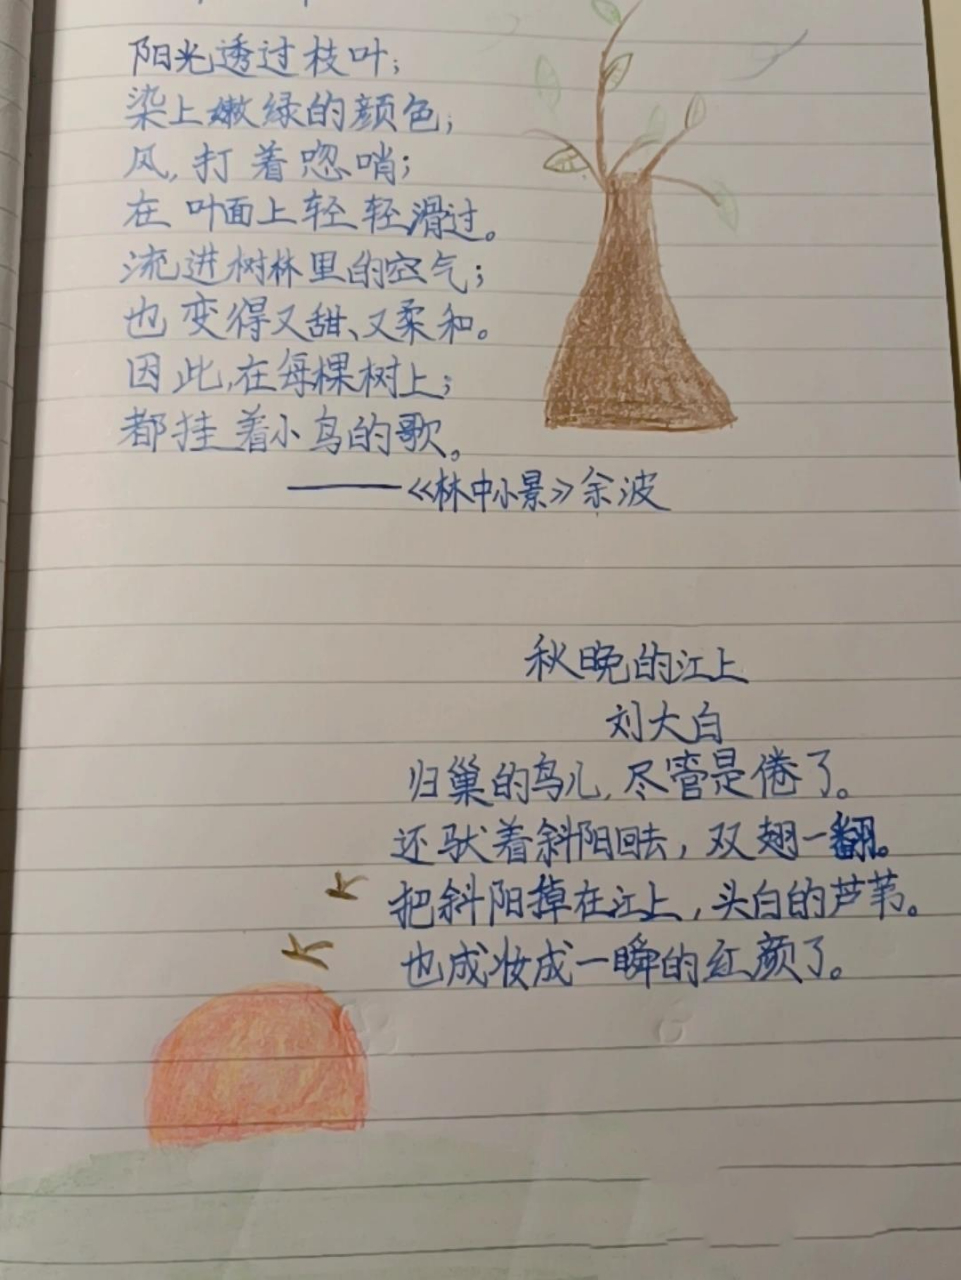 阳光透过枝叶；
染上嫩绿的颜色；
风，打着唿哨；
在叶面上轻轻滑过。
流进树林里的空气；
也变得又甜、又柔和。
因此，在每棵树上；
都挂着小鸟的歌。
——《林中小景》余波
秋晚的江上
刘大白
归巢的鸟儿，尽管是倦了。
还驮着斜阳回去，双翅一翻。
把斜阳掉在江上，头白的芦苇。
也成妆成一瞬的红颜了。